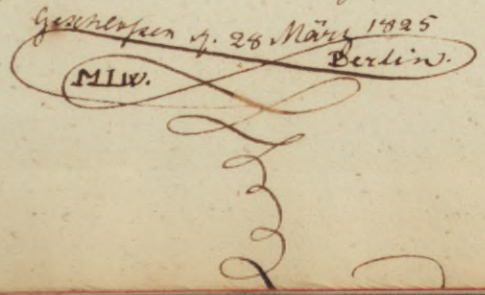 Geschlossen d. 28 März 1825
Berlin.
MIW.